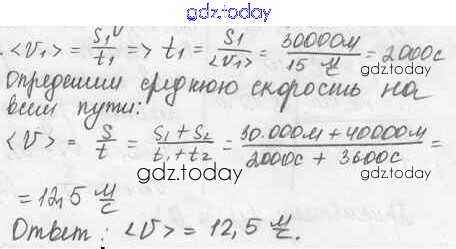 gdz.today
<V₁> = S₁/t₁ => t₁ = S₁/<V₁> = 30000м/15 м/с = 2000с
gdz.today
Определим среднюю скорость на
всем пути:
gdz.today
<V> = S/t = S₁ + S₂/t₁ + t₂ = 30.000м + 40000м/2000с + 3600с =
gdz.today
= 12,5 м/с
gdz.today
Ответ: <V> = 12,5 м/с.
gdz.today